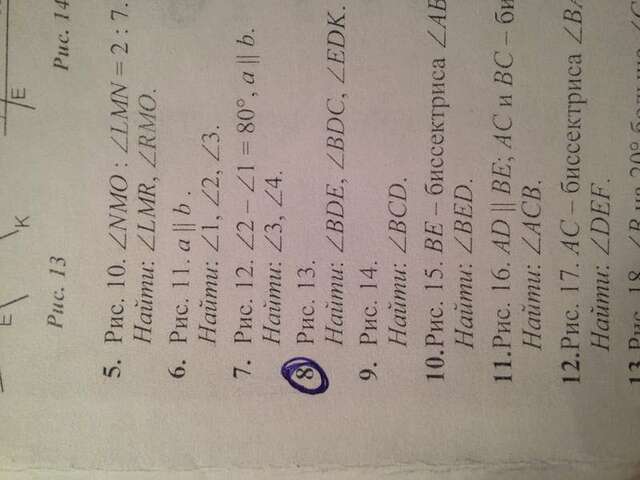 E
K
E
Рис. 13
Рис. 14
5. Рис. 10. ∠NMO : ∠LMN = 2 : 7.
Найти: ∠LMR, ∠RMO.
6. Рис. 11. a || b.
Найти: ∠1, ∠2, ∠3.
7. Рис. 12. ∠2 – ∠1 = 80°, a || b.
Найти: ∠3, ∠4.
8 Рис. 13.
Найти: ∠BDE, ∠BDC, ∠EDK.
9. Рис. 14.
Найти: ∠BCD.
10.Рис. 15. BE – биссектриса
Найти: ∠BED.
11.Рис. 16. AD || BE; AC и BC –
Найти: ∠ACB.
12.Рис. 17. AC – биссектриса
Найти: ∠DEF.
13 Рис. 18.